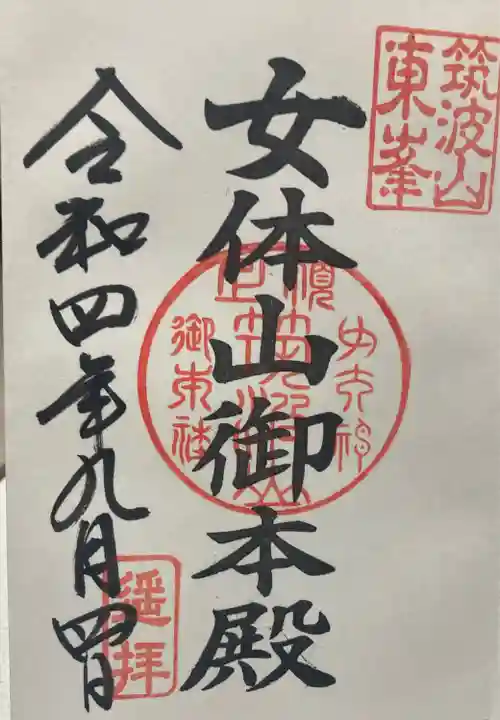 筑波山
東峯
女体山御本殿
令和四年九月四日
遥拝